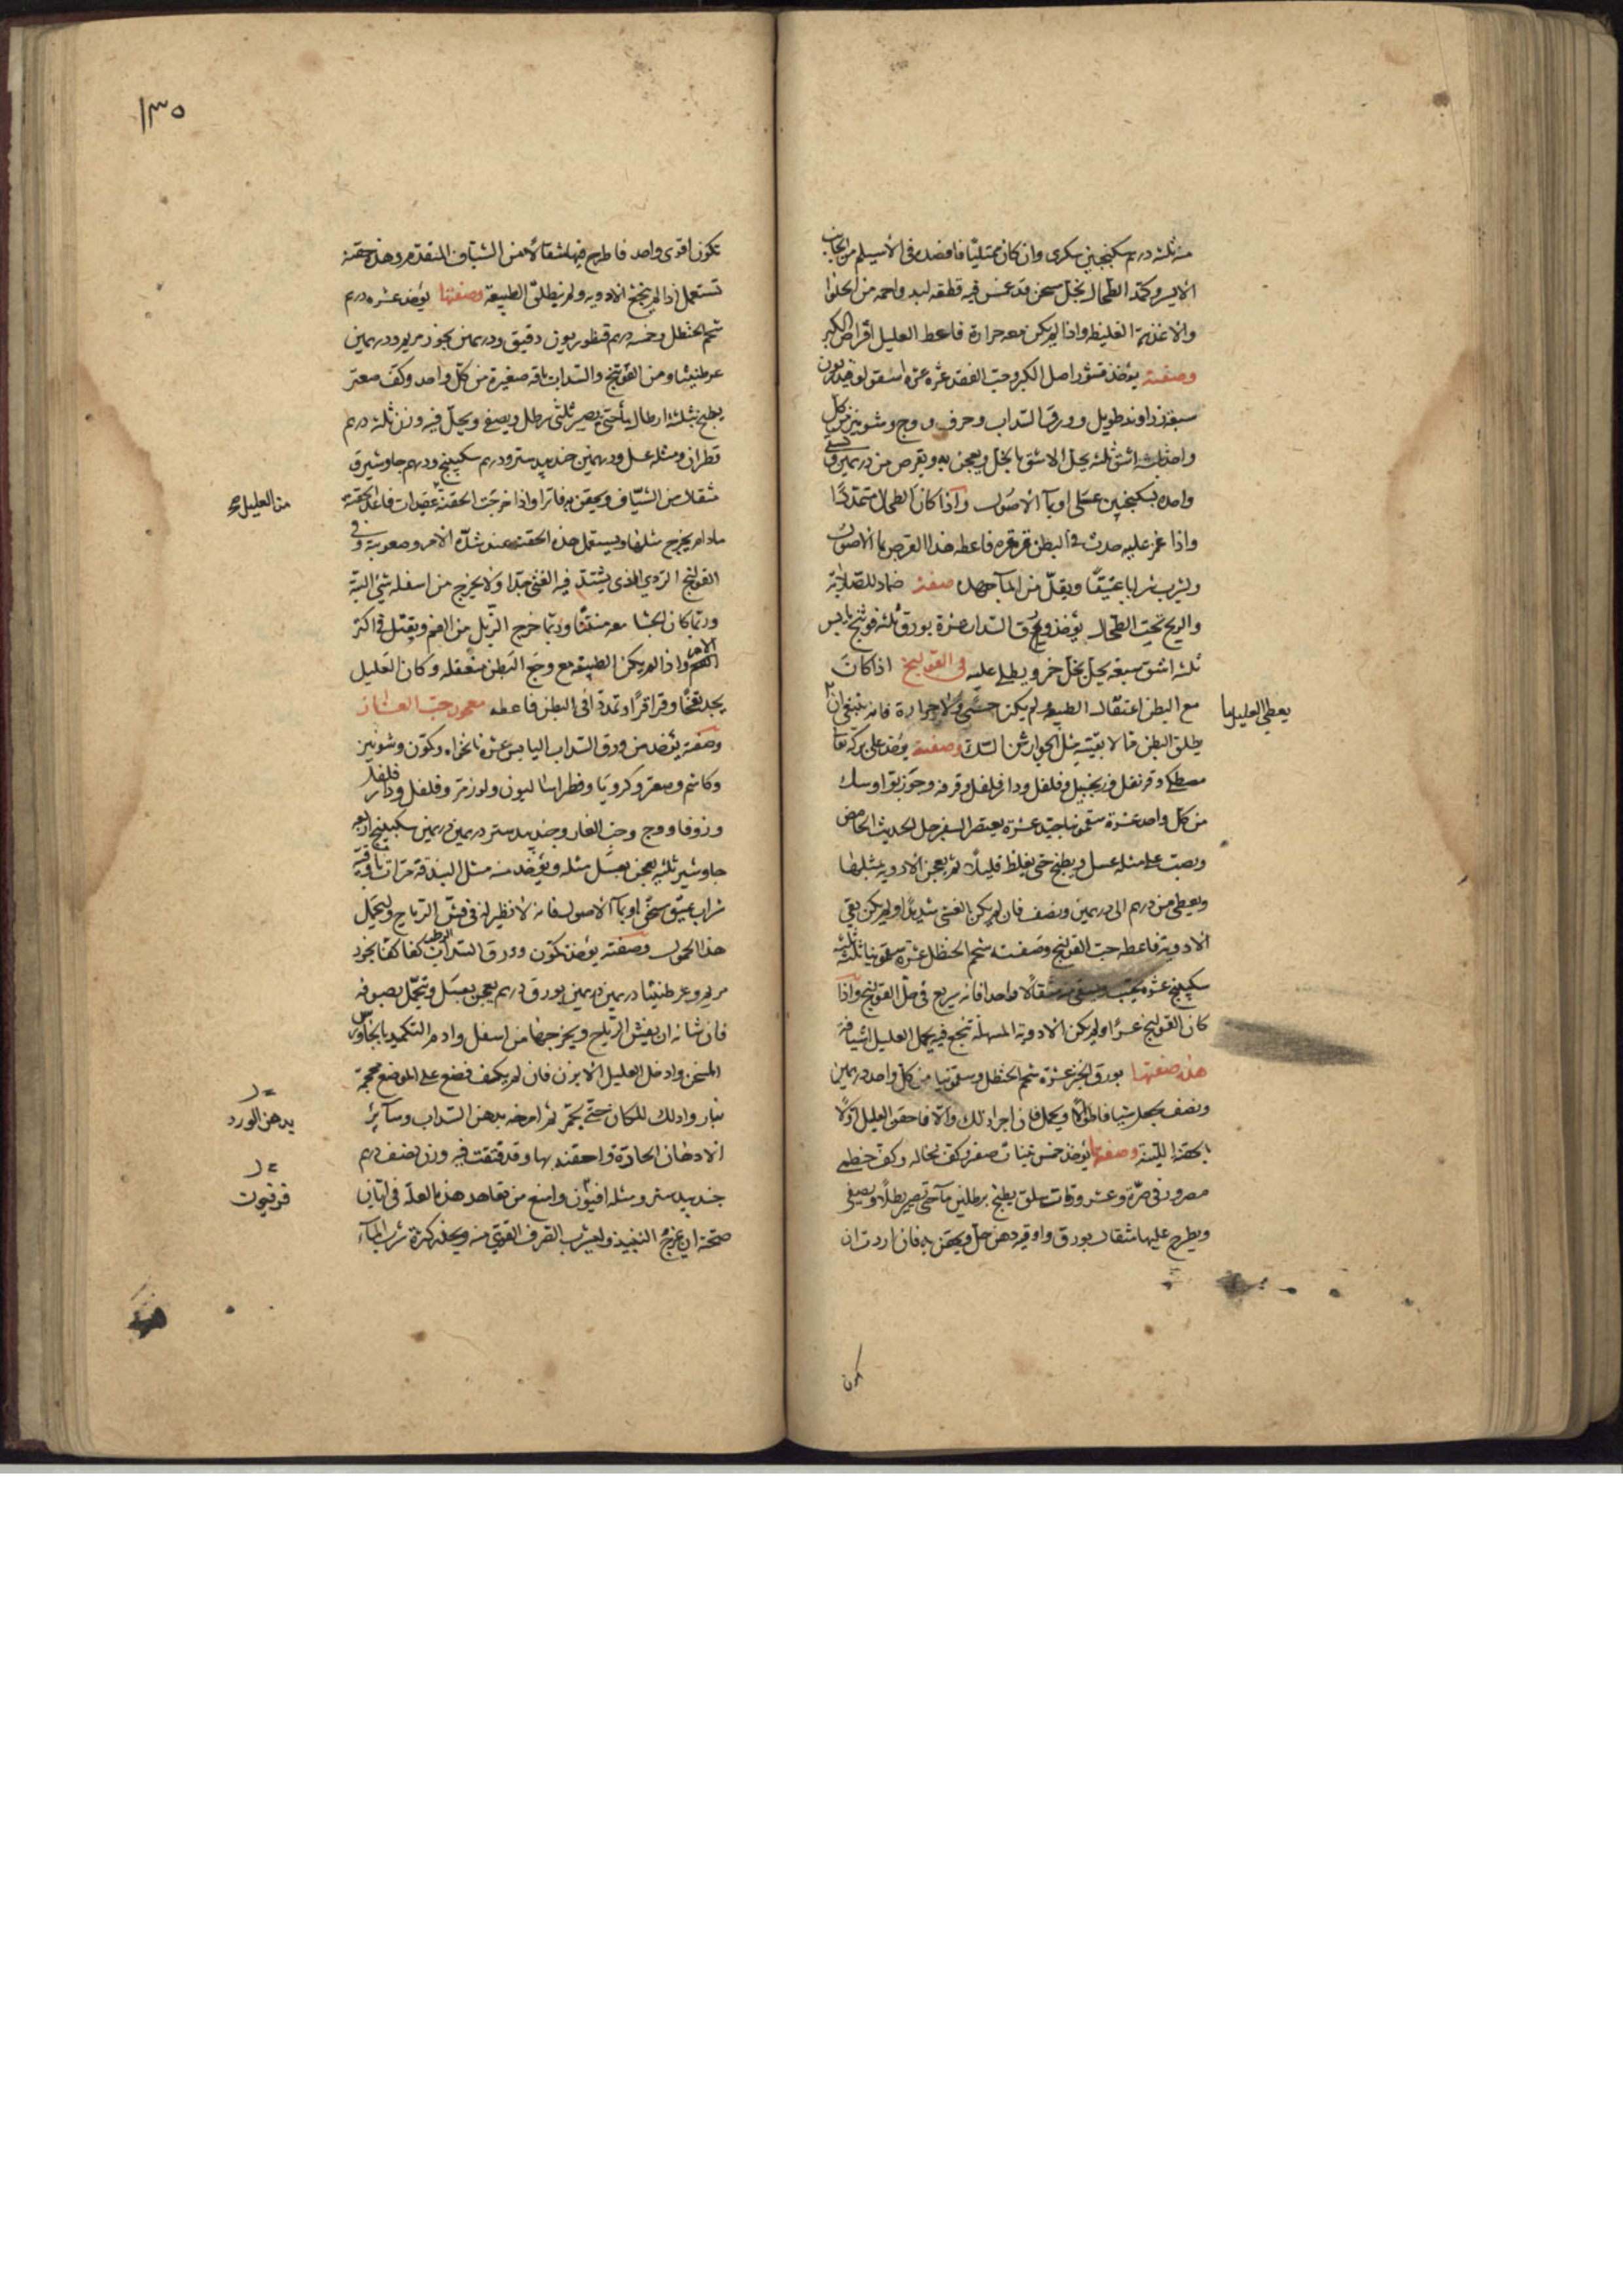 منه ثلثة درهم سكنجبين سكرى وان كان ممتليًا فافصده فى الاسيلم من الجانب
الايسر وكمّد الطحال بخل سخن قد غمس فيه قطعة لبد واحمه من الحلوا
والاغذية الغليظة واذا لم يكن معه حرارة فاعط العليل اقراص الكبر
وصفته يؤخذ قشور اصل الكبر وحب الفقد عشرة عشرة اسقولوقندريون
سبعة زراوند طويل وورق السداب وحرف ووج وشونيز من كل
واحد ثلثة اشق ثلثة يحل الاشق بالخل ويعجن به ويقرص من درهمين ويسقى
واحدة بسكنجبين عسلى او بماء الاصول واذا كان الطحال متمددًا
واذا غمز عليه حدث فى البطن قرقرة فاعطه هذا القرص بماء الاصول
وليشرب شرابا عتيقًا ويقلّ من الماء جهده صفة ضماد للصلابة
والريح تحت الطحال يؤخذ ورق السداب عشرة بورق ثلثة فوتنج يابس
ثلثة اشق سبعة يحل بخل خمر ويطلى عليه فى القولنج اذا كان
مع البطن اعتقال الطبيعة ولم يكن حمى ولا حرارة فانه ينبغى ان
يعطى العليل ما
يطلق البطن مثل الجوارشن وصفته يؤخذ على بركة الله
مصطكى وقرنفل وزنجبيل وفلفل ودار فلفل وقرفة وجوزبوا وسك
من كل واحد عشرة سقمونيا جيد عشرة يعتصر السفرجل الحديث الحامض
ويصب عليه مثله عسل ويطبخ حتى يغلظ قليلًا ثم يعجن الادوية بمثلها
ويعطى من درهم الى درهمين ونصف فان لم يكن الغشى شديدًا ولم يكن يقى
الادوية فاعطه حب القولنج وصفته شحم الحنظل عشرة سقمونيا ثلثة
سكبينج عشرة يحبب ويسقى منه مثقالًا واحدا فانه سريع فى حل القولنج واذا
كان القولنج عسرًا ولم يكن الادوية المسهلة تنجع فيه يحمل العليل اشيافة
هذه صفتها بورق الخبز عشرة شحم الحنظل وسقمونيا من كل واحد درهمين
ونصف يجعل شيافا طوالًا ويحمل فان اجراء ذلك والّا فاحقن العليل اولًا
بالحقنة اللينة وصفتها يؤخذ خمس تينات صفر وكف نخالة وكف خطمى
مصرور فى صرّة وعشر ورقات سلق يطبخ برطلين ماء حتى تصير رطلًا ويصفى
ويطرح عليها مثقال بورق واوقية دهن حل ويحقن به فان اردت ان
تكون
١٣٥
تكون اقوى واحد فاطرح فيها مثقالًا من الشياف المتقدم وهذه حقنة
تستعمل اذا لم ينجح الادوية ولم تطلق الطبيعة وصفتها يؤخذ عشرة درهم
شحم الحنطل وخمسة درهم قنطوريون دقيق ودرهمين بخور مريم ودرهمين
عرطنيثا ومن الفوتنج والسداب باقة صغيرة من كل واحد وكف صعتر
يطبخ بثلثة ارطال ماء حتى يصير ثلثى رطل ويصفى ويحل فيه وزن ثلثة درهم
قطران ومثله عسل ودرهمين جندبيدستر ودرهم سكبينج ودرهم جاوشير ق
مثقال من الشياف ويحقن به فاترا واذا خرجت الحقنة فاعد الحقنة
من العليل
مادام يخرج مثلها ويستعمل هذه الحقنة عند شدّة الامر وصعوبته وفى
القولنج الردى الذى يشتد فيه الغشى جدّا ولا يخرج من اسفله شئ البتة
وربما كان الجشا معه منتنًا وربّما خرج الزبل من الفم ويقتل فى اكثر
الامر واذا لم يكن الطبيعة مع وجع البطن منعقلة وكان العليل
يجد نفخًا وقراقرًا وتمددًا فى البطن فاعطه معجون حب الغار
وصفته يؤخذ من ورق السداب اليابس عشرة نانخواه وكمون وشونيز
وكاشم وصعتر وكرويا وفطراساليون ولوز مر وفلفل ودار فلفل
وزوفا ووج وحب الغار وجندبيدستر درهمين درهمين سكبينج اربعة
جاوشير ثلثة يعجن بعسل مثله ويؤخذ منه مثل البندقة
شراب عتيق سخن او بماء الاصول فانه لا نظير له فى فشّ الرياح وليحمل
هذا الحمول وصفته يؤخذ كمون وورق السداب الرطب كفا كفا بخور
مريم وعرطنيثا درهمين درهمين بورق درهم يعجن بعسل وتحمّل بصوفة
فان شانه ان يفش الرياح ويخرجها من اسفل وادم التكميد بالجاورس
المسخن وادخل العليل الابزن فان لم يكف فضع على الموضع محجمة
بنار وادلك المكان حتى يحمّر ثم امرخه بدهن السداب وسائر
بدهن الورد
الادهان الحادّة واحقنه بها وقد فتقت فيه وزن نصف درهم
جندبيدستر ومثله افيون وامنع من تعاهد هذه العلة فى ابان
فرفيون
صحته ان يمزج النبيذ وليشرب الصرف القوى منه ويحذر كثرة شرب الماء